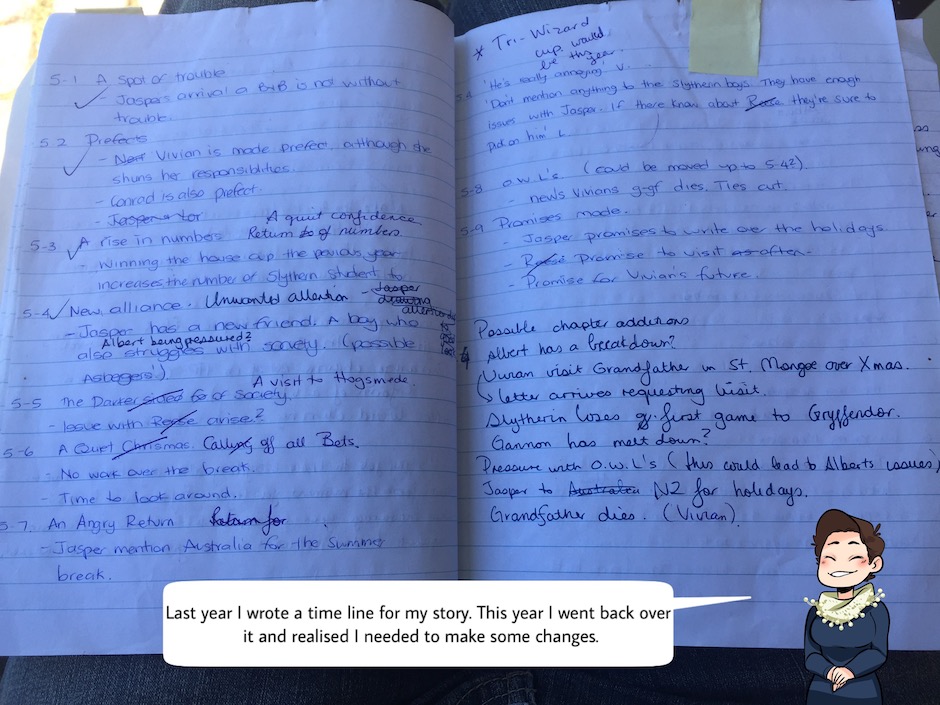 5-1 A spot of trouble
- Jaspers arrival a B+B is not without
trouble.
5-2 Prefects
- Vivian is made prefect, although she
shuns her responsibilities.
- Conrad is also prefect.
- Jasper
A quiet confidence
5-3 A rise in numbers Return of numbers
- Winning the house cup the pevious year
increases the number of Slythern student to
5-4 New alliance. Unwanted attention - Jasper
drawing
attention
- Jasper has a new friend. A boy who
Albert being pressured?
also struggles with society. (possible
Asbegers')
A visit to Hogsmede.
5-5 The Darker sided of Society.
- Issue with Reese arise?
5-6 A Quiet Christmas. Calling of all Bets.
- No work over the break.
- Time to look around.
5-7. An Angry Return Return for
- Jasper mention Australia for the summer
break.
* Tri-Wizard
cup would
be this
year.
'He's really annoying' V.
'Don't mention anything to the Slythern boys. They have enough
issues with Jasper. If there know about Reese they're sure to
pick on him' L
5-8 O.W.L's (could be moved up to 5-4?).
- news Vivians g-gf dies. Ties cut.
5-9 Promises made.
- Jasper promises to write over the holidays
- Reese Promise to visit as often.
- Promise for Vivian's future.
Possible chapter additions
Albert has a breakdown?
Vivian visit Grandfather in St. Mangoe over Xmas.
↳ letter arrives requesting visit.
Slytherin loses first game to Gryffendor.
Gannon has melt down?
Pressure with O.W.L's (this could lead to Alberts issues)
Jasper to Australia NZ for holidays.
Grandfather dies. (Vivian).
Last year I wrote a time line for my story. This year I went back over
it and realised I needed to make some changes.